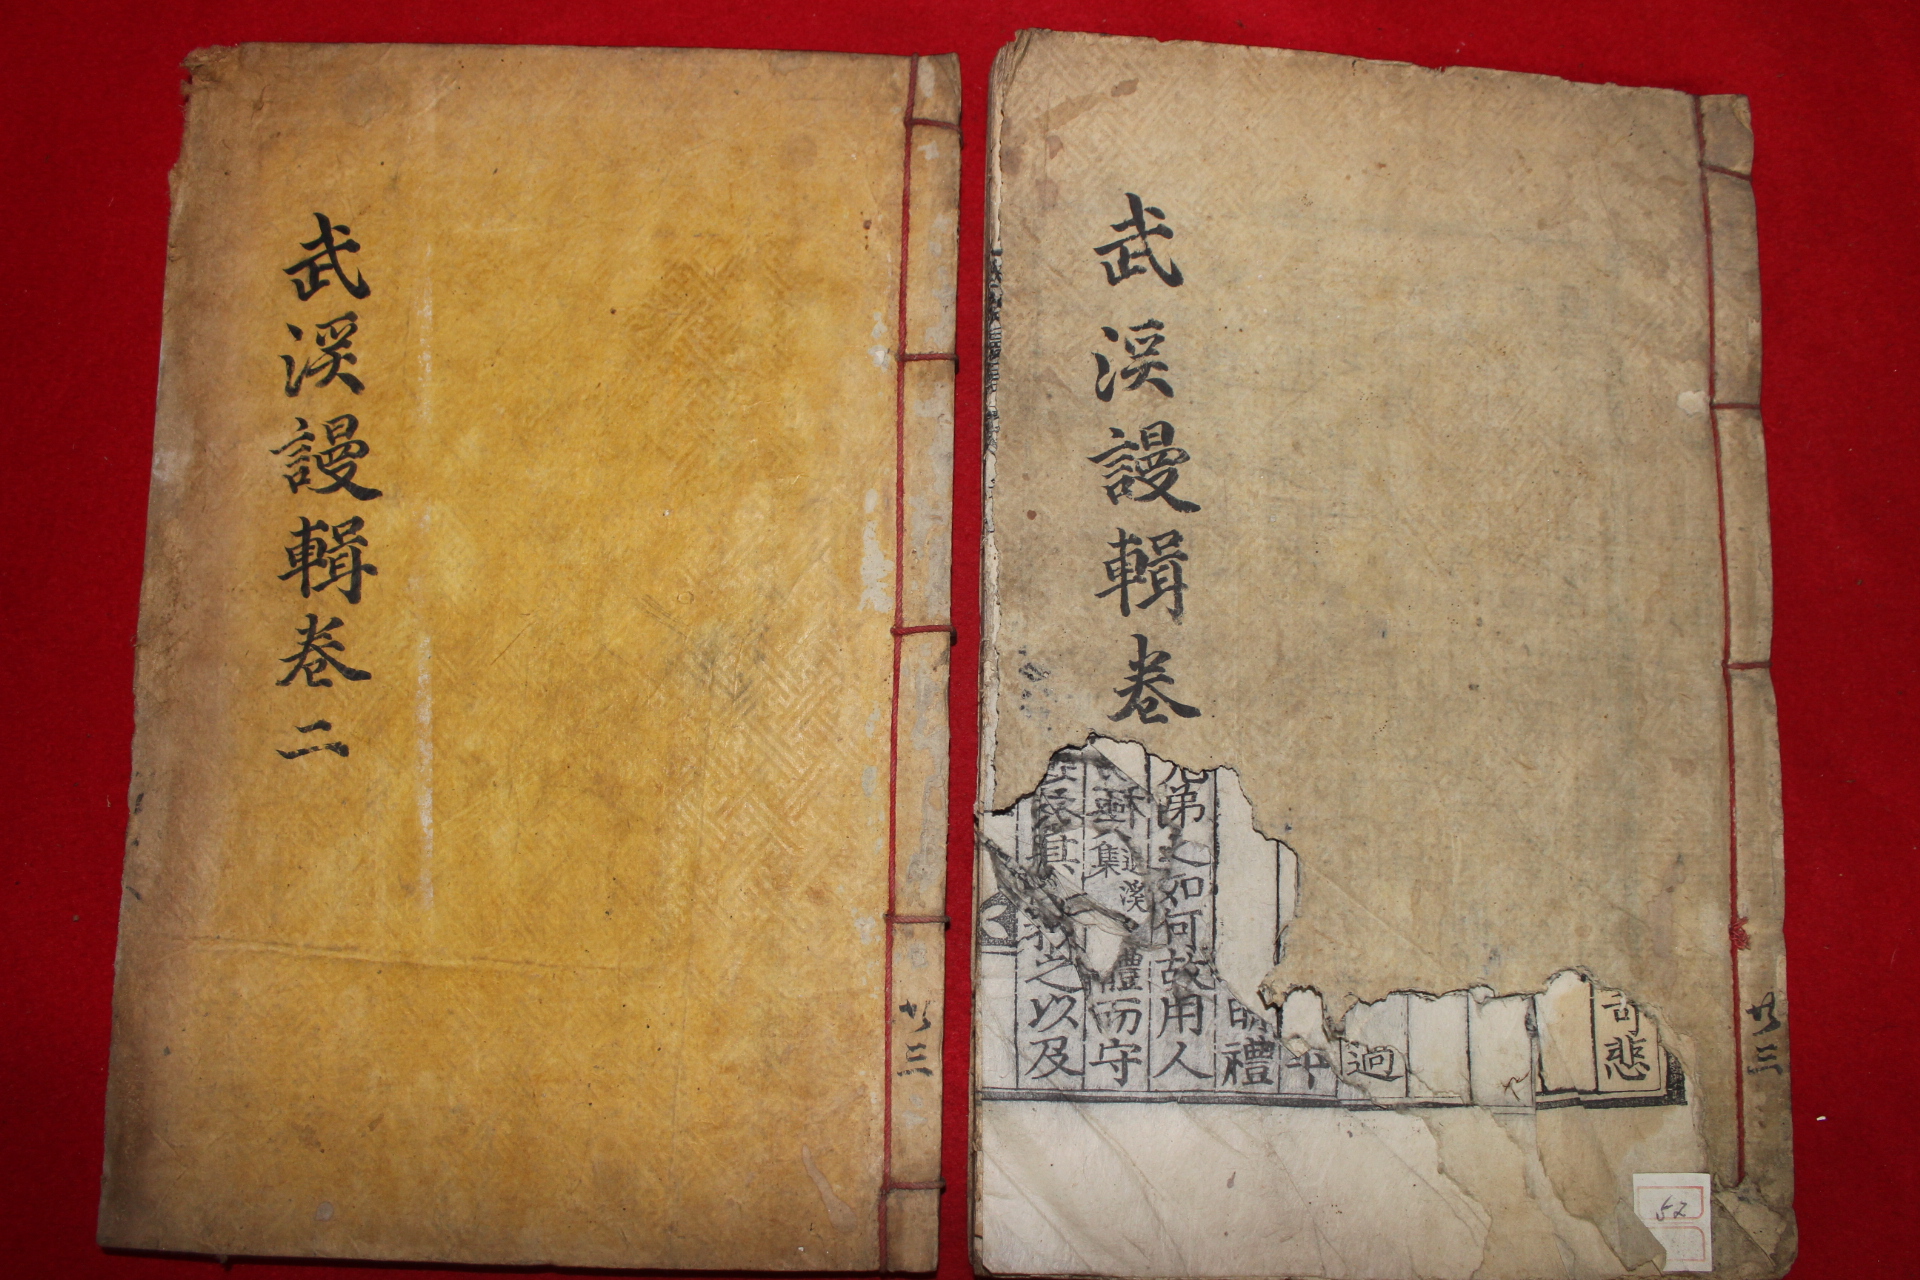 武溪謾輯卷二
共三
武溪謾輯卷
共三
可悲
過
禮
兄弟之如何故用人
集
溪
禮而守
其
之以及
52